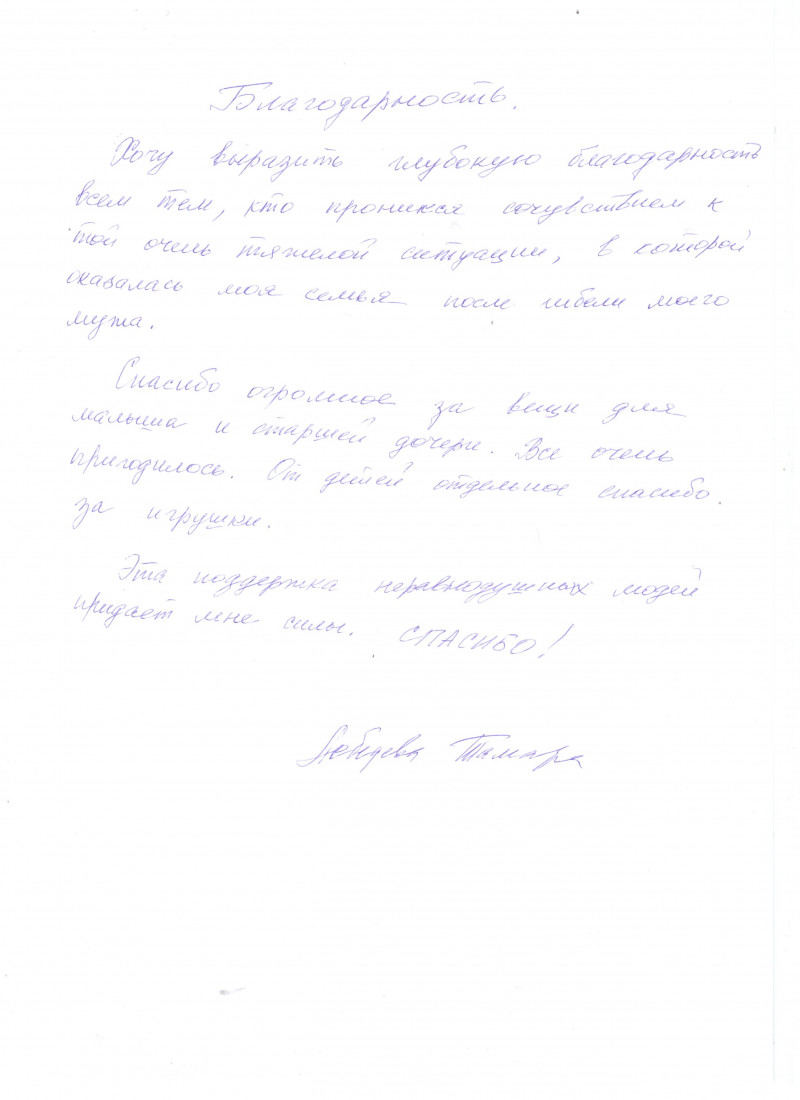 Благодарность.
Хочу выразить глубокую благодарность
всем тем, кто проникся сочувствием к
той очень тяжелой ситуации, в которой
оказалась моя семья после гибели моего
мужа.
Спасибо огромное за вещи для
малыша и старшей дочери. Все очень
пригодилось. От детей отдельное спасибо
за игрушки.
Эта поддержка неравнодушных людей
придает мне силы. СПАСИБО!
Лебедева Тамара